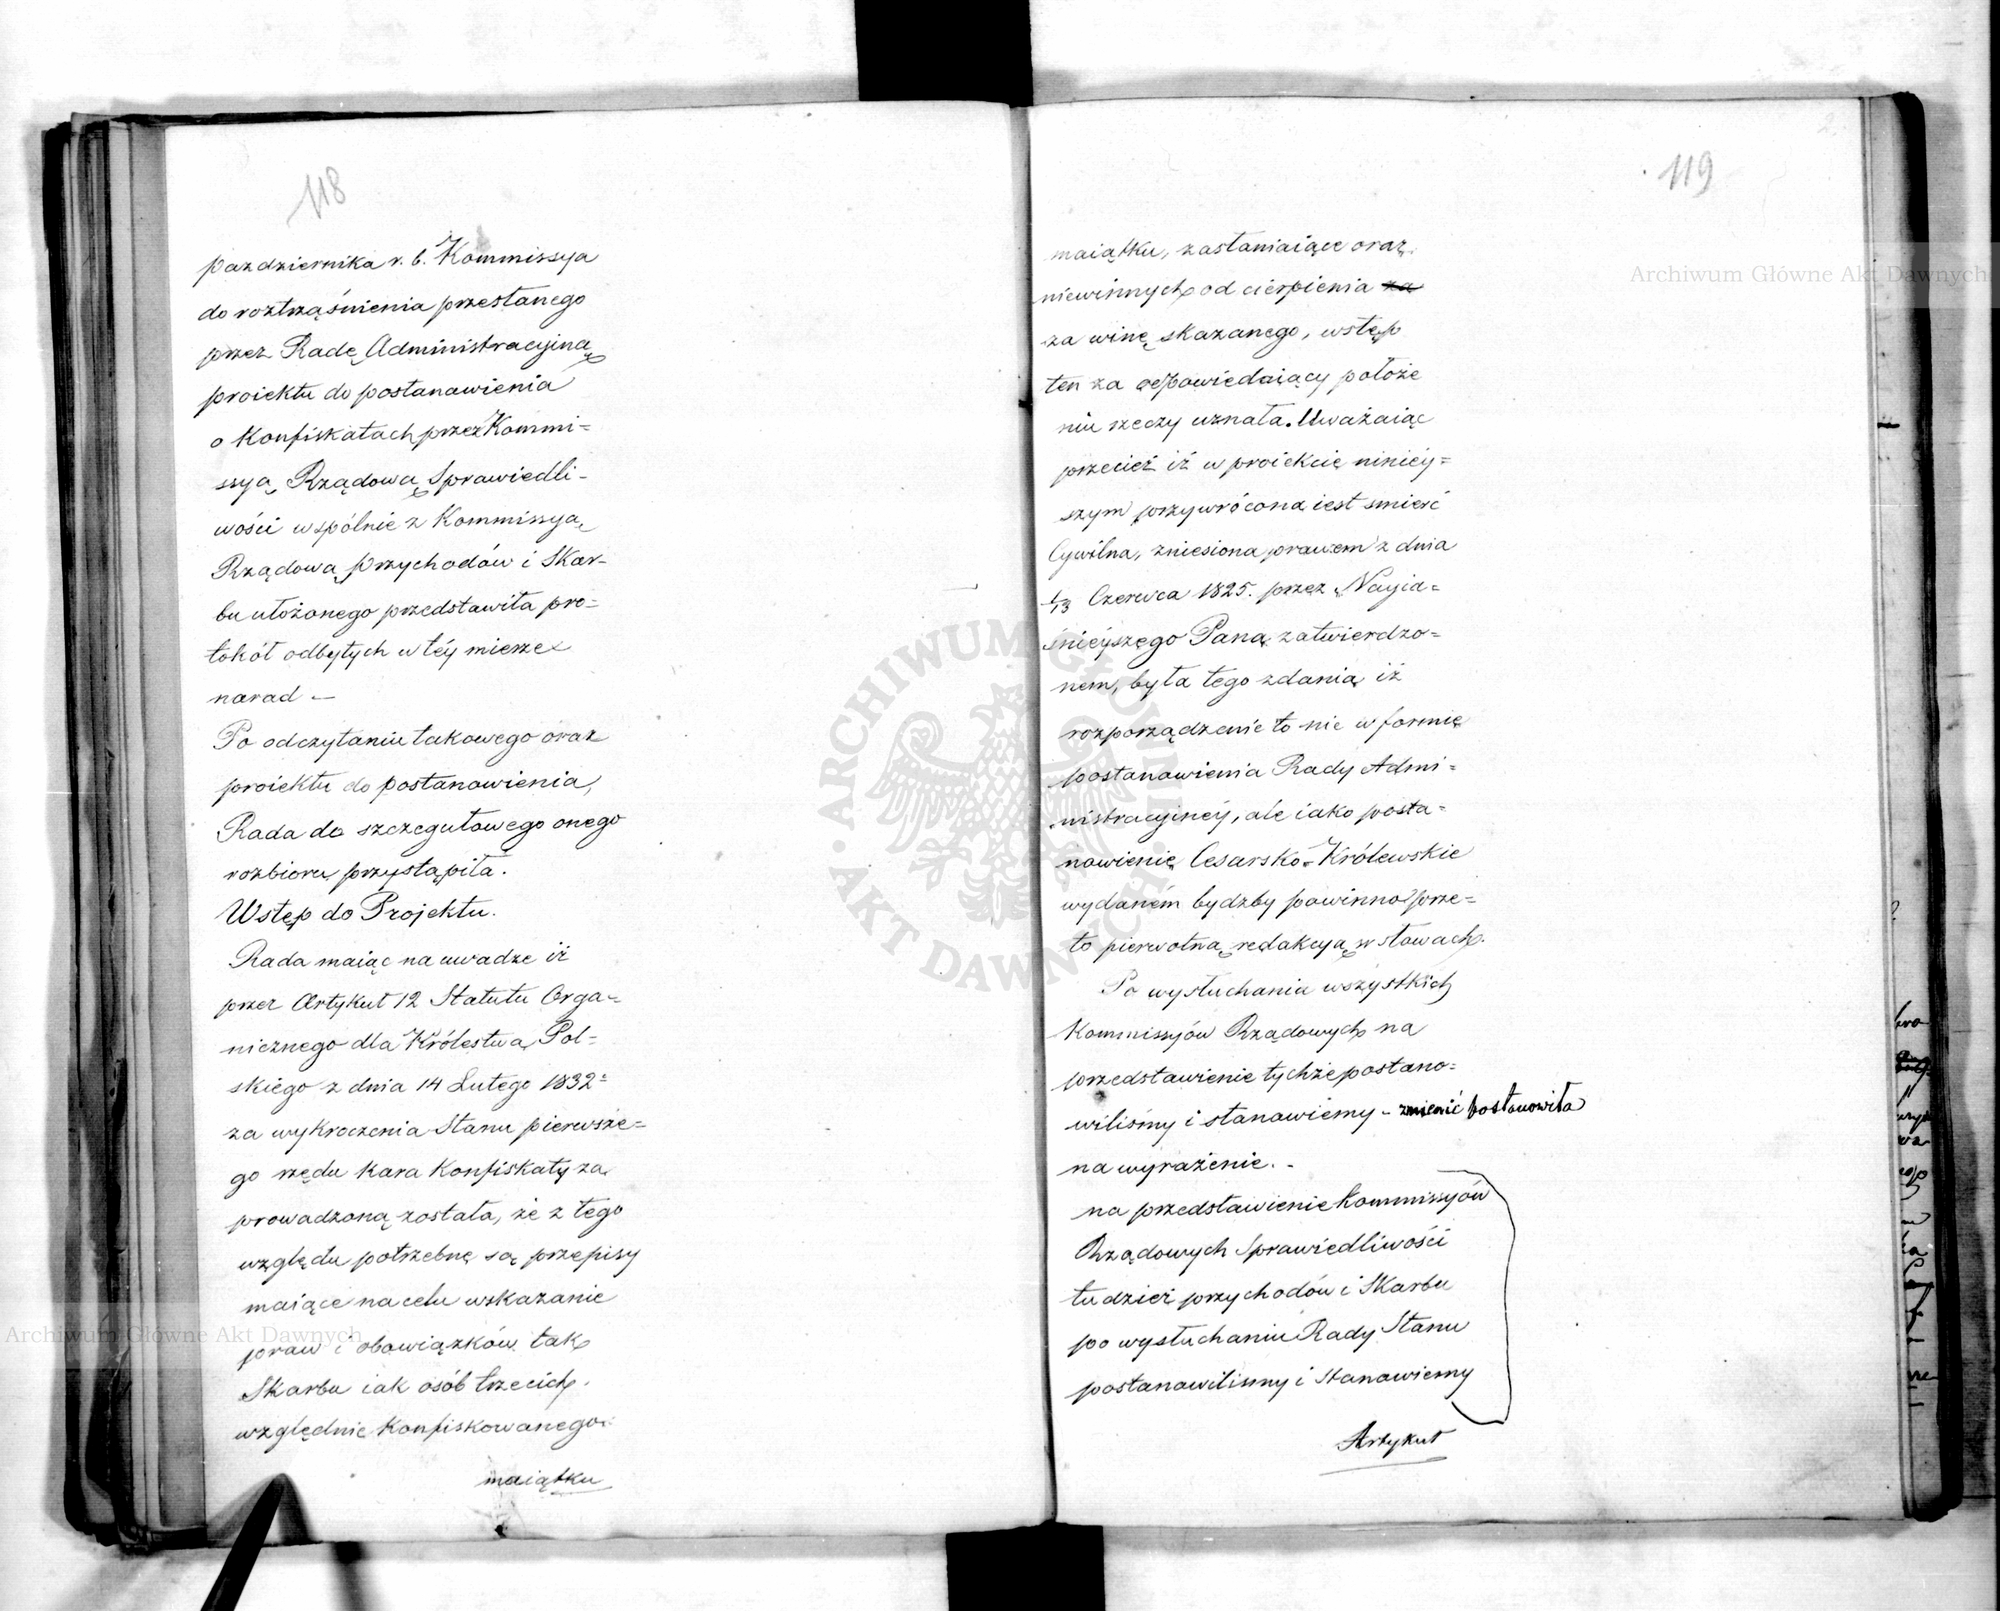 118
pazdziernika r. b. Kommissya
do roztrząśnienia przesłanego
przez Radę Administracyjną
proiektu do postanawienia
o Konfiskatach przez Kommi=
ssyą Rządową Sprawiedli=
wości wspólnie z Kommissyą
Rządową Przychodów i Skar=
bu ułożonego przedstawiła pro=
tokół odbytych w téy mierze
narad –
Po odczytaniu takowego oraz
proiektu do postanowienia,
Rada do szczegułowego onego
rozbioru przystąpiła.
Wstęp do Projektu.
Rada maiąc na uwadze iż
przez Artykuł 12 Statutu Orga=
nicznego dla Królestwa Pol=
skiego z dnia 14 Lutego 1832=
za wykroczenia Stanu pierwsze=
go rzędu kara Konfiskaty za
prowadzoną została, że z tego
względu potrzebne są przepisy
maiące na celu wskazanie
praw i obowiązków tak
Skarbu iak osób trzecich
względnie Konfiskowanego
maiątku
119
maiątku, zasłaniaiące oraz
niewinnych od cierpienia za
za winę skazanego, wstęp
ten za odpowiedaiący położe
niu rzeczy uznała. Uważaiąc
przecież iż w proiekcie niniéy=
szym przywrócona iest smierć
Cywilna, zniesiona prawem z dnia
1/13 Czerwca 1825. przez Nayia=
śnieyszego Pana zatwierdzo=
nem, była tego zdania iż
rozporządzenie to nie w formie
postanowienia Rady Admi=
nistracyinéy, ale iako posta=
nowienie Cesarsko-Królewskie
wydaném bydźby powinno prze=
to pierwotną redakcyą w słowach
Po wysłuchania wszystkich
Kommissyów Rządowych na
przedstawienie tychże postano=
wilismy i stanawiemy – zmienić postanowiła
na wyrażenie. –
na przedstawienie Kommissyów
Rządowych Sprawiedliwości
tudzież przychodów i Skarbu
po wysłuchaniu Rady Stanu
postanawilismy i Stanawiemy
Artykuł
Archiwum Główne Akt Dawnych
Archiwum Główne Akt Dawnych
ARCHIWUM GŁÓWNE AKT DAWNYCH